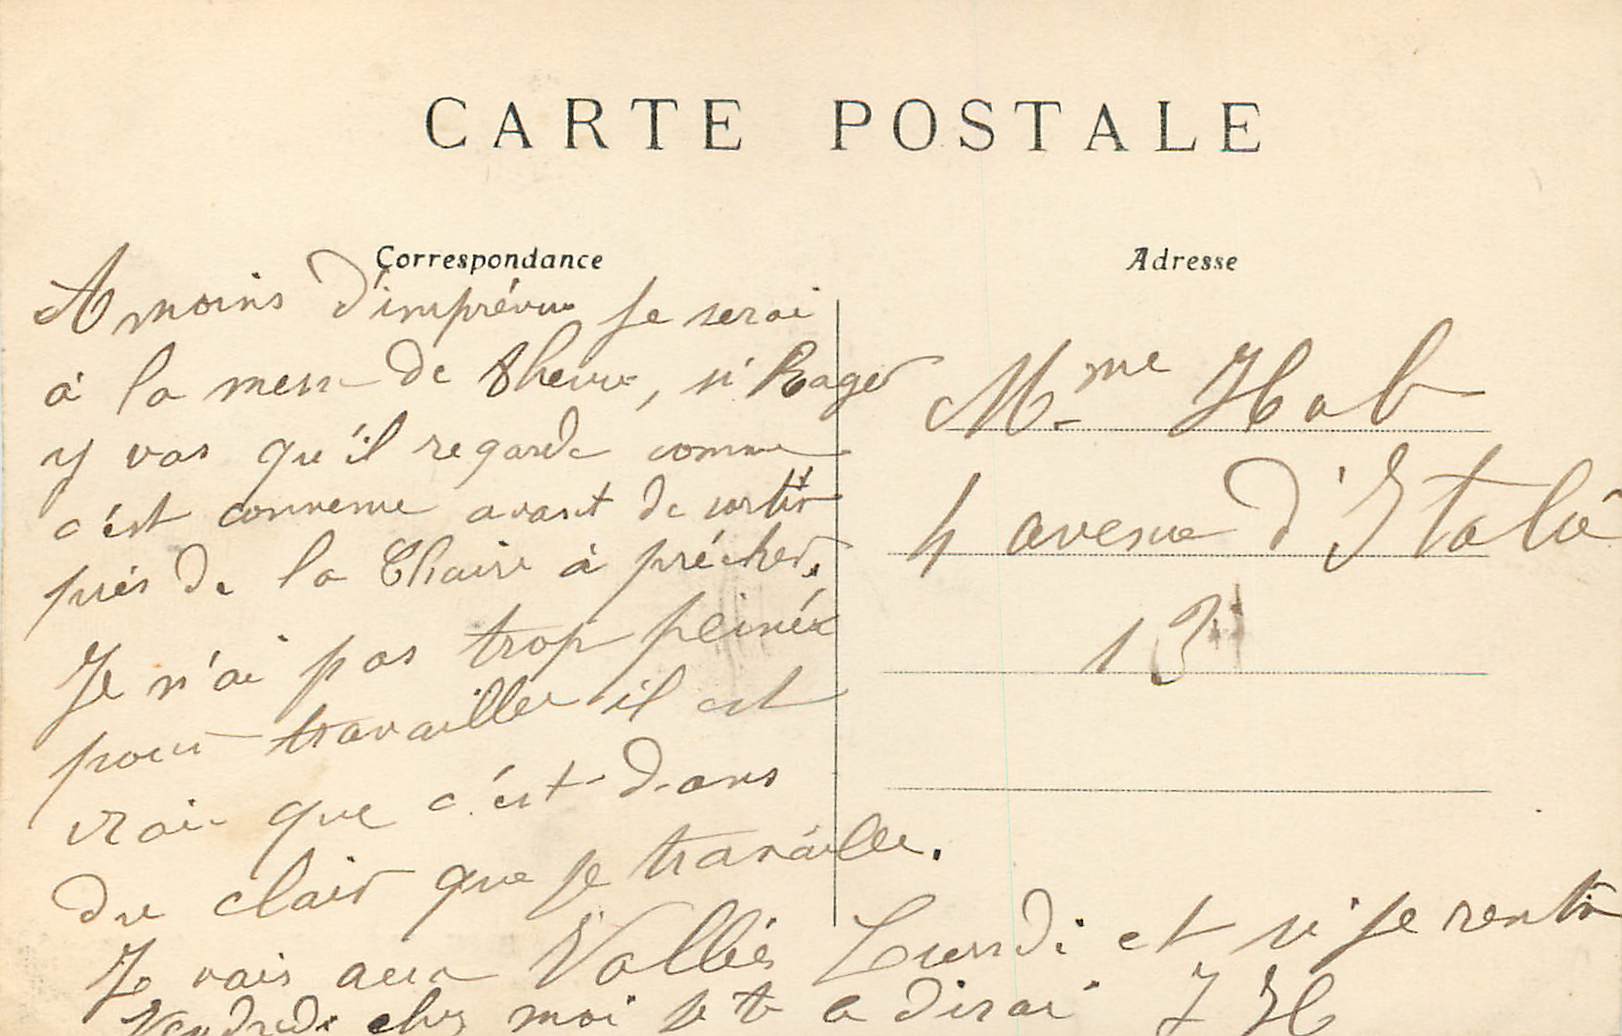 CARTE POSTALE
Correspondance
A moins d'imprévu je serai
à la messe de 8 heures, si Roger
y vas qu'il regarde comme
c'est convenue avant de sortir
près de la Chaire à prêcher.
Je n'ai pas trop peinée
pour travailler il est
vrai que c'est dans
du clair que je travaille.
Je vais aux Vallées Lundi et si je rentre
Vendredi chez moi je te le dirai J H
Adresse
Mme Hab
4 avenue d'Italie
13